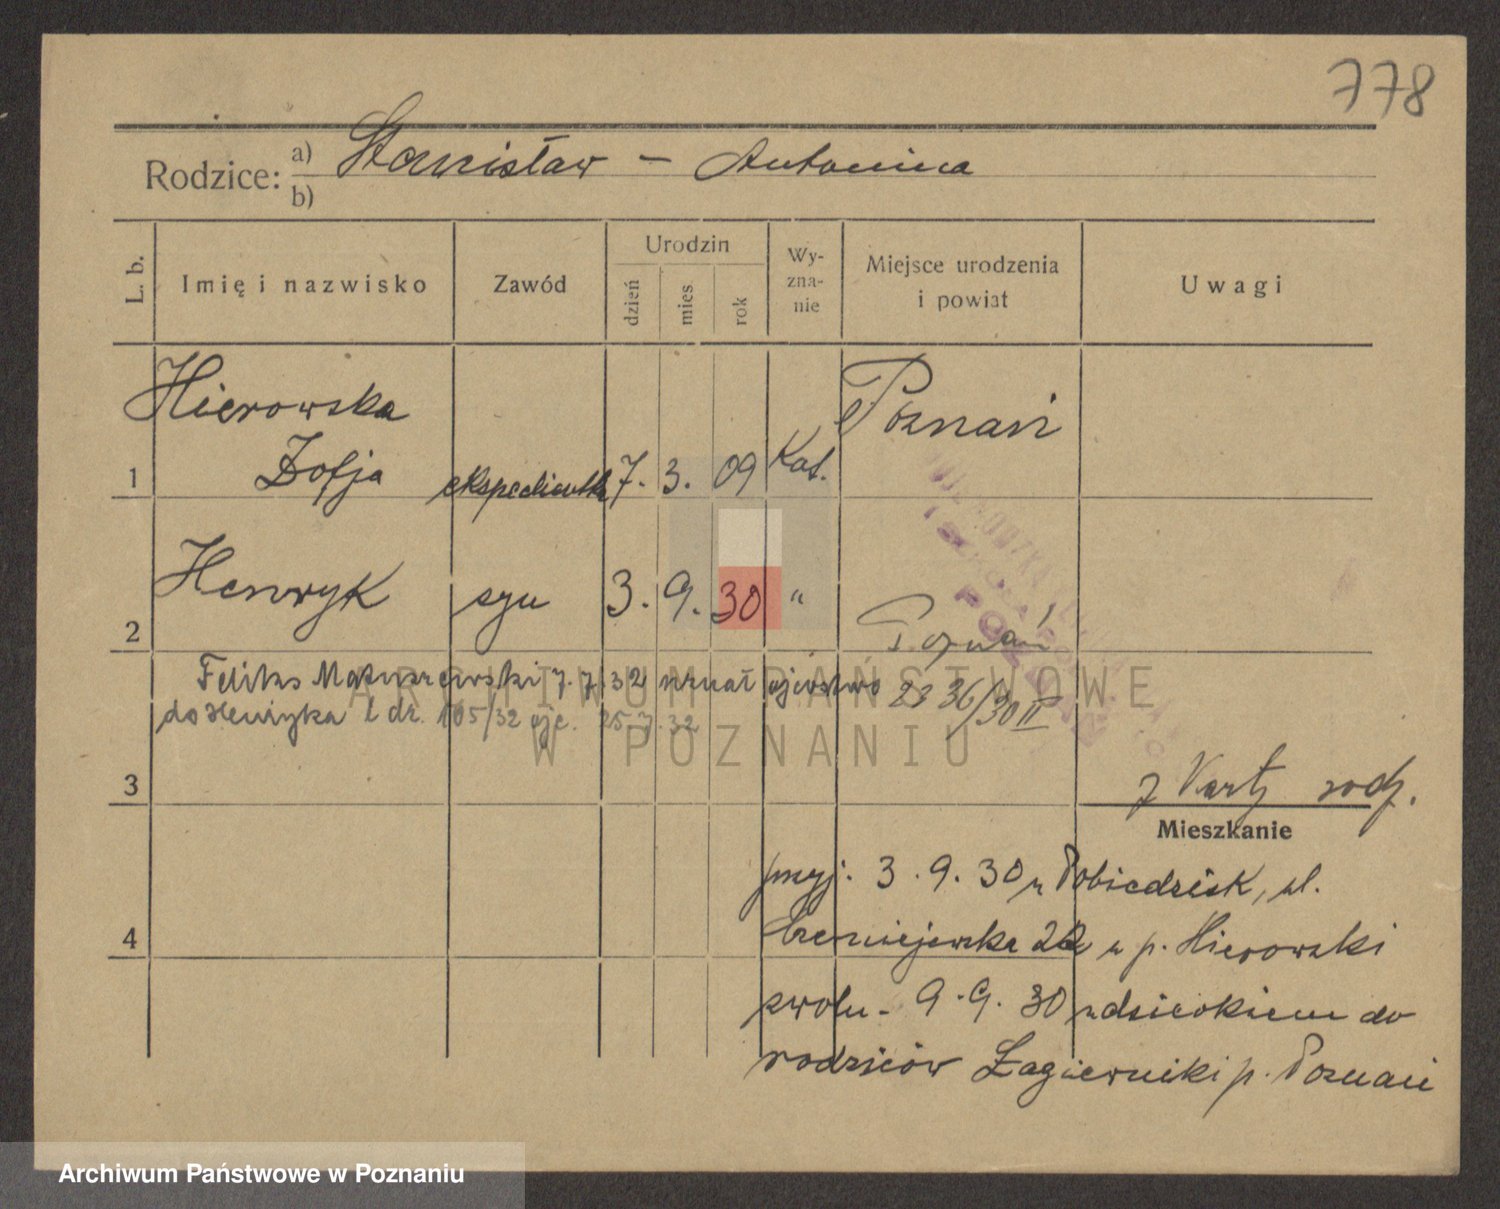 778
Rodzice: a) Stanisław – Antonina
b)
L. b. Imię i nazwisko Zawód Urodzin dzień mies rok Wy-zna-nie Miejsce urodzenia i powiat Uwagi
Hierowska Poznań
1 Zofja ekspedientka 7. 3. 09 Kat.
2 Henryk syn 3. 9. 30 " Poznań
Feliks Matuszewski 7.7.32 uznał ojcostwo 2336/30 II
do Henryka l dz. 105/32 ojc. 25.7.32
ARCHIWUM PAŃSTWOWE
W POZNANIU
3 z Kart rodz.
Mieszkanie
przyj. 3.9.30 z Pobiedzisk, ul.
4 22 u p. Hierowski
9.9.30 z dzieckiem do
rodziców Żagiewniki p. Poznań
Archiwum Państwowe w Poznaniu